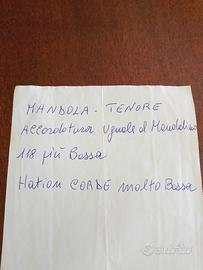 MANDOLA - TENORE
Accordatura Uguale al Mandolino
118 più Bassa
CORDE molto Bassa
Subito.it